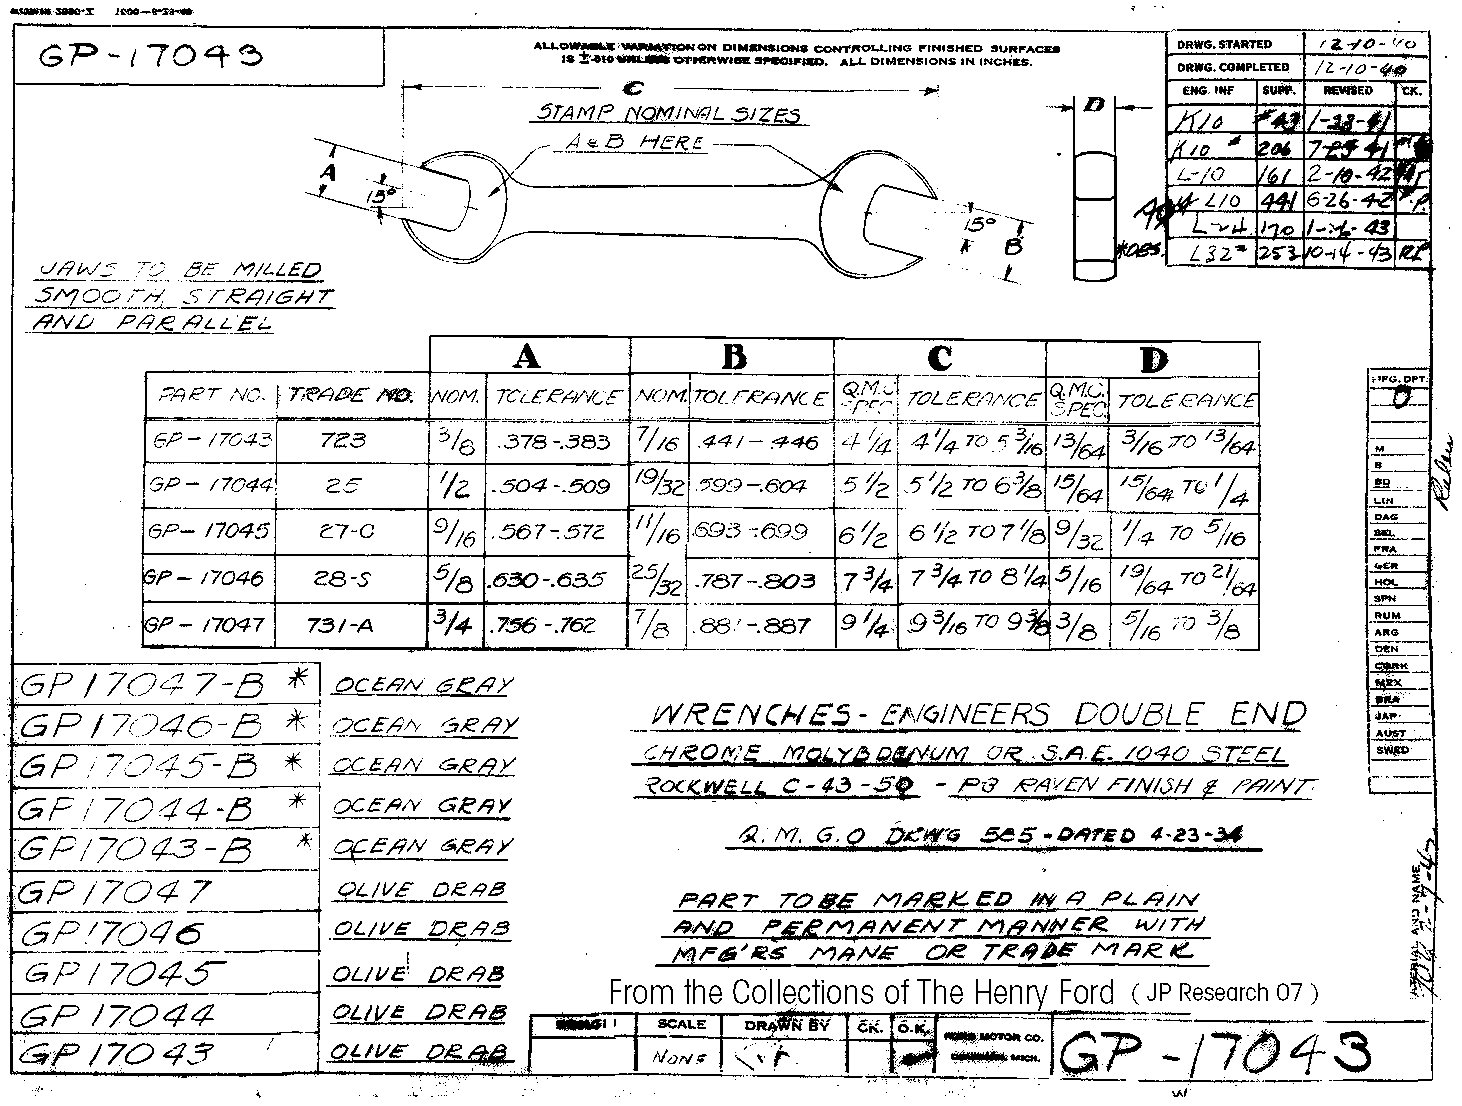 GP-17043
ALLOWABLE VARIATION ON DIMENSIONS CONTROLLING FINISHED SURFACES
IS ±.010 UNLESS OTHERWISE SPECIFIED. ALL DIMENSIONS IN INCHES.
DRWG. STARTED 12-10-40
DRWG. COMPLETED 12-10-40
ENG. INF SUPP. REVISED CK.
K10 #43 1-23-41
K10 206 7-25-41
L-10 161 2-10-42
L10 441 6-26-42
170
L32 253 10-14-43
*OBS.
C
STAMP NOMINAL SIZES
A & B HERE
D
A
15°
15°
B
JAWS TO BE MILLED
SMOOTH, STRAIGHT
AND PARALLEL
A B C D
PART NO. TRADE NO. NOM. TOLERANCE NOM. TOLERANCE Q.M.C. SPEC TOLERANCE Q.M.C. SPEC. TOLERANCE
GP-17043 723 3/8 .378-.383 7/16 .441-.446 4 1/4 4 1/4 TO 5 3/16 13/64 3/16 TO 13/64
GP-17044 25 1/2 .504-.509 19/32 .599-.604 5 1/2 5 1/2 TO 6 3/8 15/64 15/64 TO 1/4
GP-17045 27-C 9/16 .567-.572 11/16 .693-.699 6 1/2 6 1/2 TO 7 1/8 9/32 1/4 TO 5/16
GP-17046 28-S 5/8 .630-.635 25/32 .787-.803 7 3/4 7 3/4 TO 8 1/4 5/16 19/64 TO 21/64
GP-17047 731-A 3/4 .756-.762 7/8 .881-.887 9 1/4 9 3/16 TO 9 3/8 3/8 5/16 TO 3/8
MFG. DPT.
M
B
BD
LIN
DAG
BEL
FRA
GER
HOL
SPN
RUM
ARG
DEN
CORK
MEX
BRA
JAP
AUST
SWED
GP17047-B * OCEAN GRAY
GP17046-B * OCEAN GRAY
GP17045-B * OCEAN GRAY
GP17044-B * OCEAN GRAY
GP17043-B * OCEAN GRAY
GP17047 OLIVE DRAB
GP17046 OLIVE DRAB
GP17045 OLIVE DRAB
GP17044 OLIVE DRAB
GP17043 OLIVE DRAB
WRENCHES-ENGINEERS DOUBLE END
CHROME MOLYBDENUM OR S.A.E. 1040 STEEL
ROCKWELL C-43-50 - P3 RAVEN FINISH & PAINT.
Q.M.G.O DRWG 585-DATED 4-23-34
PART TO BE MARKED IN A PLAIN
AND PERMANENT MANNER WITH
MFG'RS MANE OR TRADE MARK
From the Collections of The Henry Ford ( JP Research 07 )
SCALE DRAWN BY CK. O.K.
NONE
MOTOR CO.
MICH.
GP-17043